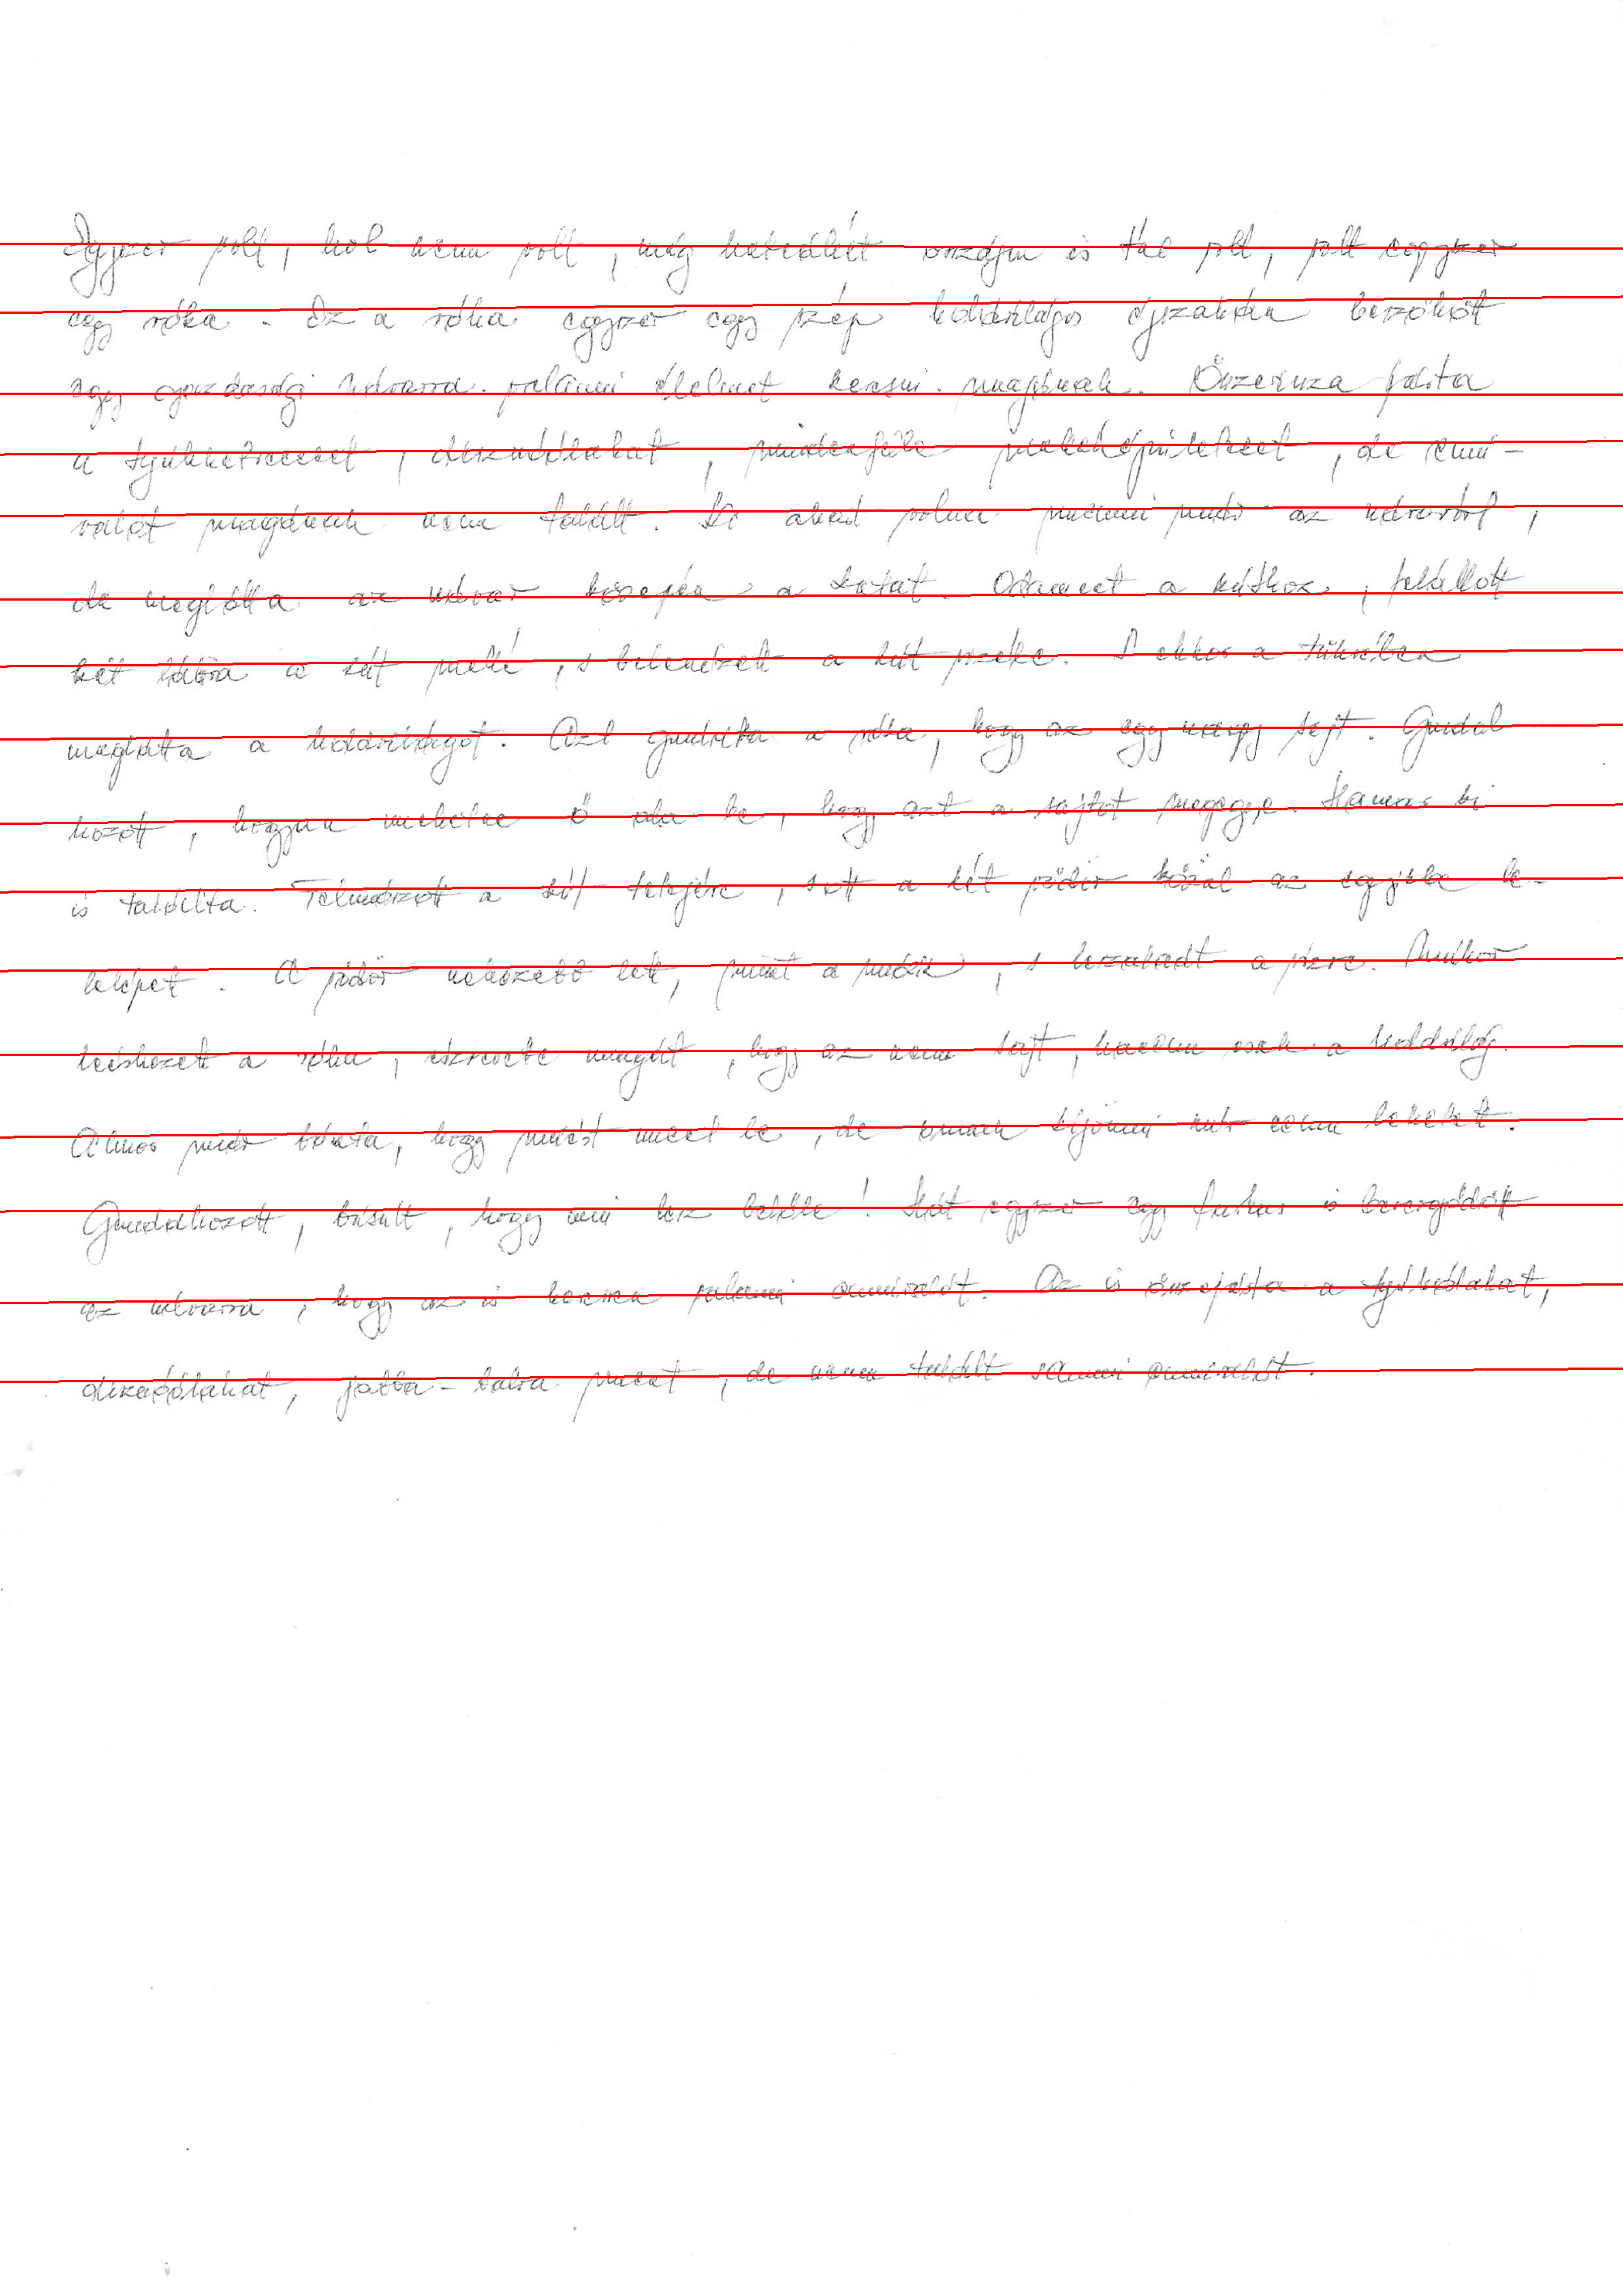 Egyszer volt, hol nem volt, még hetedhét országon is túl volt, volt egyszer
egy róka. Ez a róka egyszer egy szép holdvilágos éjszakán beszökött
egy gazdasági udvarra valami élelmet keresni magának. Összevissza futta
a tyúkketreceket, disznóólakat, mindenféle melléképületeket, de enni-
valót magának nem talált. Ki akart volna menni már az udvarból,
de meglátta az udvar közepén a kutat. Odament a kúthoz, felállott
két lábra a kút mellé, s belenézett a kút vizébe. S akkor a tükrében
meglátta a holdvilágot. Azt gondolta a róka, hogy az egy nagy sajt. Gondol
kozott, hogyan mehetne ő oda be, hogy azt a sajtot megegye. Hamar ki
is találta. Felnézett a kút tetejére, s ott a két vödör közül az egyikbe be-
lelépet. A vödör nehezebb lett, mint a másik, s leszaladt a vízre. Amikor
leérkezett a róka, észrevette magát, hogy az nem sajt, hanem csak a holdvilág.
Akkor már bánta, hogy miért ment le, de onnan kijönni már nem lehetett.
Gondolkozott, búsult, hogy mi lesz belőle! Hát egyszer egy farkas is bevergődött
az udvarra, hogy az is keressen valami ennivalót. Az is összejárta a tyúkólakat,
disznóólakat, jobbra-balra ment, de nem talált semmi ennivalót.